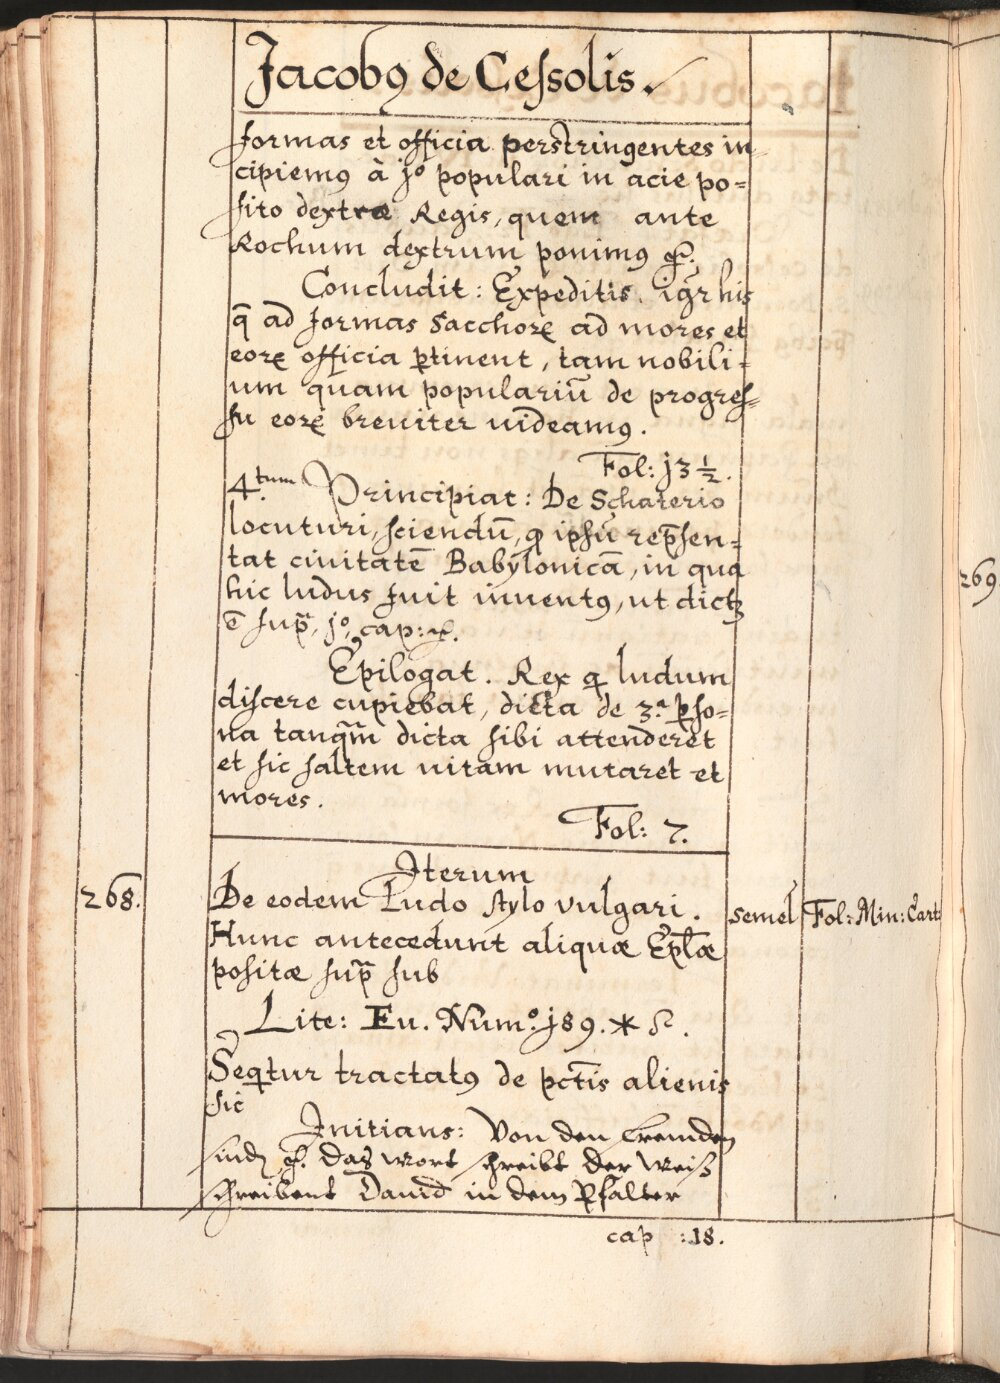 Jacobꝯ de Cessolis.
formas et officia perstringentes in
cipiemꝯ à jo populari in acie po=
sito dextræ Regis, quem ante
Rochum dextrum ponimꝯ &.
Concludit: Expeditis. igr̄ his
q̄ ad formas Sacchorꝝ ad mores et
eorꝝ officia ꝑtinent, tam nobili=
um quam populariū de progres=
su eorꝝ breviter uideamꝯ.
Fol: j3 ½.
4.tum Principiat: De Schaterio
locuturi, sciendū, q̄ ipsū rep̄sen=
tat ciuitatē Babylonicā, in qua
hic ludus fuit inuentꝯ, ut dictꝫ
ē sup̄, jo, cap: &.
Epilogat. Rex q̄ ludum
discere cupiebat, dicta de 3.a ꝑso=
na tanq̄m dicta sibi attenderet
et sic saltem uitam mutaret et
mores.
Fol: 7.
Iterum
268. De eodem Ludo stylo vulgari. semel Fol: Min: Cart
Hunc antecedunt aliquæ Ep̄læ
positæ sup̄ sub
Lite: Eu. Num.o j89. *
Seq̄tur tractatꝯ de pctīs alienis
sic
Initians: Von den fremden
sind &. das wort schreibt der weiß
schreibent Dauid in dem Psalter
cap :18.
269.